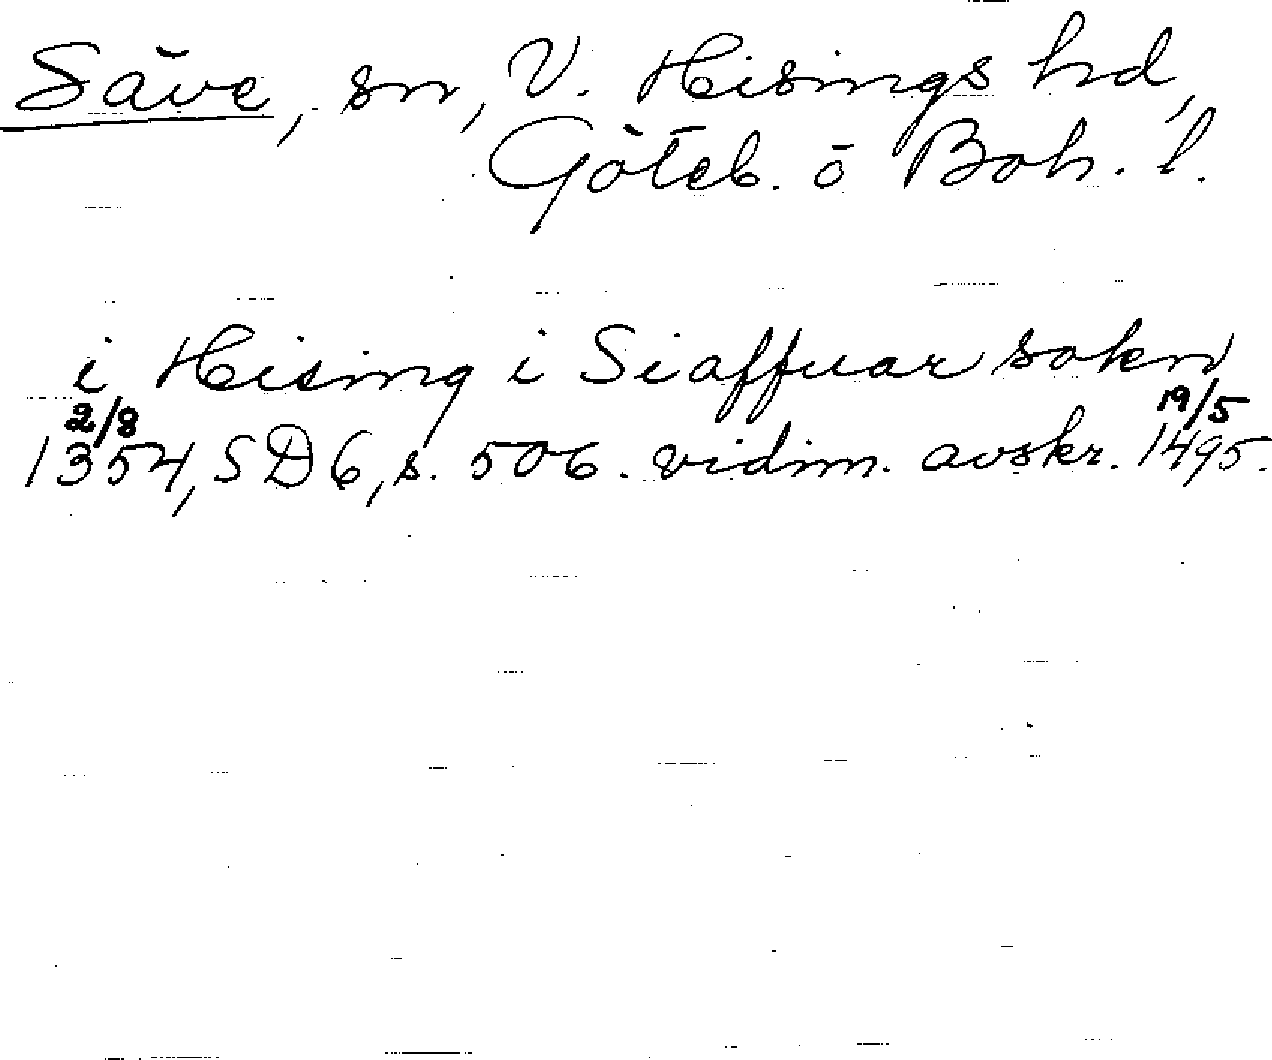 Säve, sn, V. Hisings hd,
Göteb. o Boh. l.
i Hising i Siaffuar sokn
2/8 19/5
1354, SD 6, s. 506. vidim. avskr. 1495.